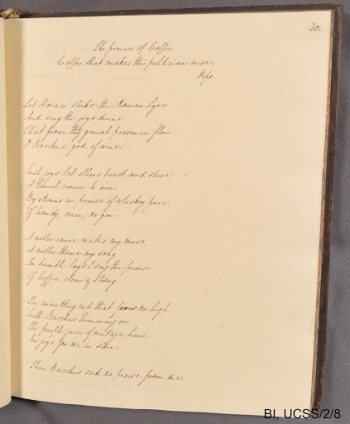 20.
The praises of Coffee.
Coffee that makes the politician wise.
Pope.
Let Horace strike the Roman Lyre
And sing the joys divine
That from thy genial presence flow
O Bacchus, god of wine
Such joys let others boast, and strive
A Laurel crown to win
By strains in praise of whiskey
Of brandy, rum, or gin
Another cause my muse,
Another theme my song
In humble lays I sing the praise
Of Coffee clear & strong
The mantling cup that foams on high
With Bacchus
The purple juice of vintage
No joys for me in store
Then Bacchus seek no praise from me
BI, UCSS/2/8